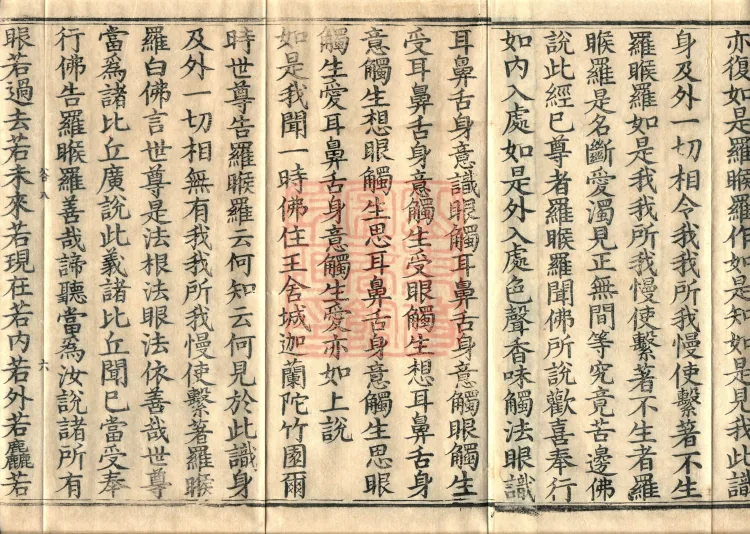 亦復如是羅睺羅作如是知如是見我此識
身及外一切相令我我所我慢使繫著不生
羅睺羅如是我我所我慢使繫著不生者羅
睺羅是名斷愛濁見正無間等究竟苦邊佛
說此經已尊者羅睺羅聞佛所說歡喜奉行
如內入處如是外入處色聲香味觸法眼識
耳鼻舌身意識眼觸耳鼻舌身意觸眼觸生
受耳鼻舌身意觸生受眼觸生想耳鼻舌身
意觸生想眼觸生思耳鼻舌身意觸生思眼
觸生愛耳鼻舌身意觸生愛亦如上說
如是我聞一時佛住王舍城迦蘭陀竹園爾
時世尊告羅睺羅云何知云何見於此識身
及外一切相無有我我所我慢使繫著羅睺
羅白佛言世尊是法根法眼法依善哉世尊
當為諸比丘廣說此義諸比丘聞已當受奉
行佛告羅睺羅善哉諦聽當為汝說諸所有
六
眼若過去若未來若現在若內若外若麤若